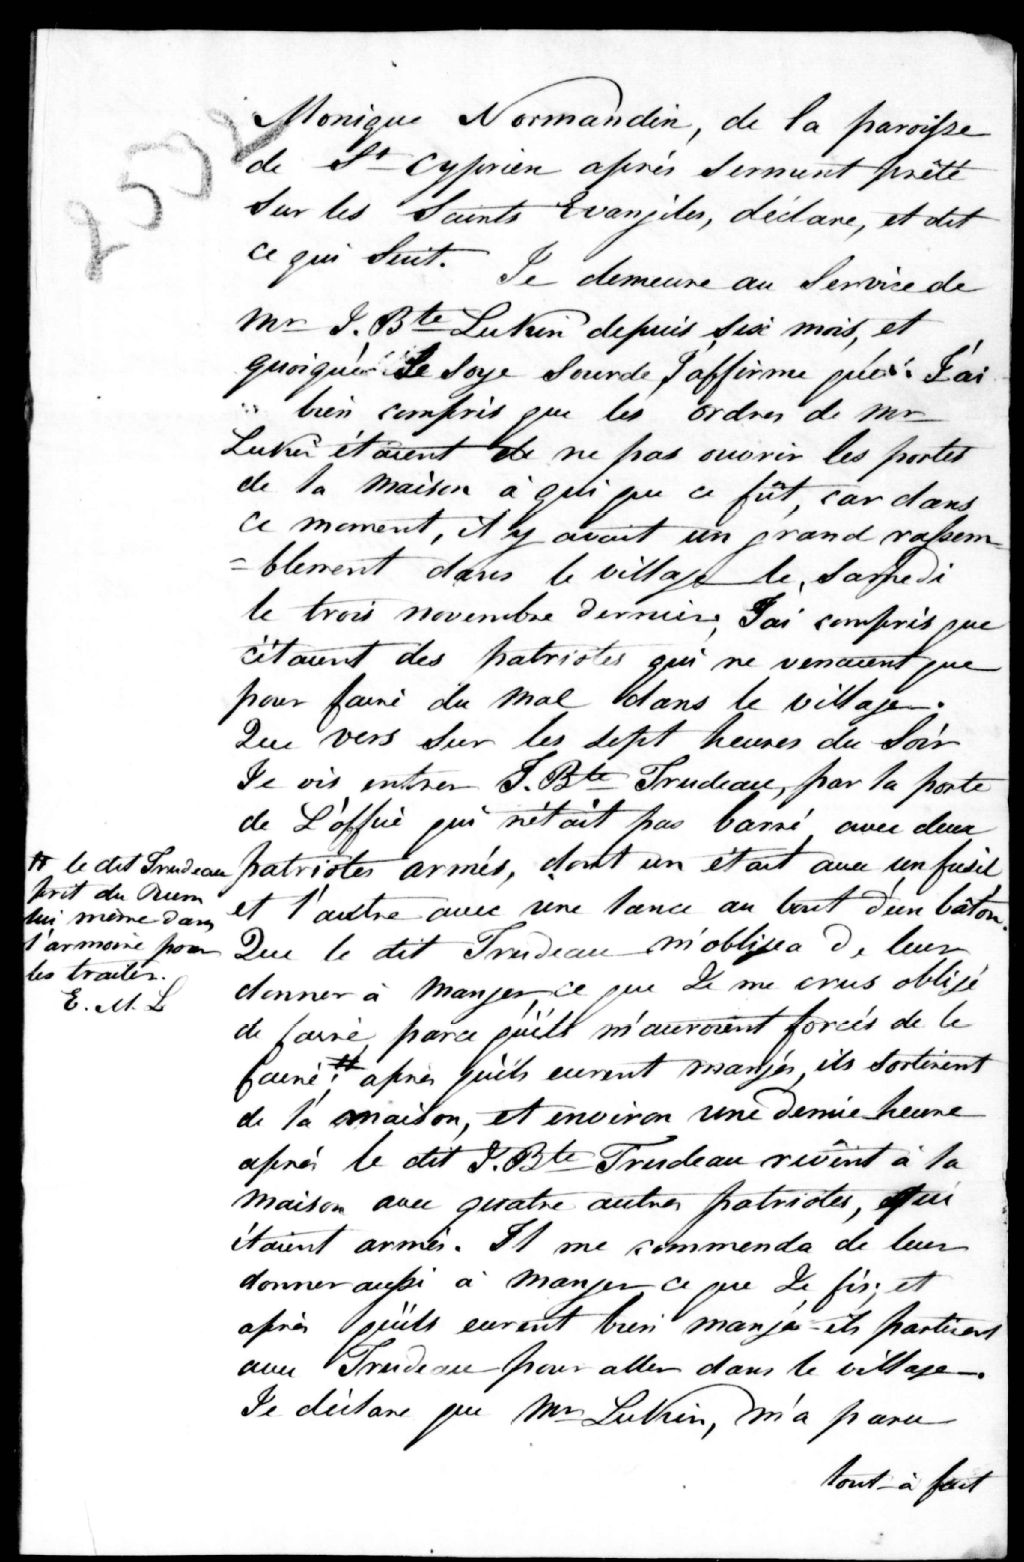 2532
Monique Normandin, de la paroisse
de St Cyprien après serment prêté
sur les Saints Evangiles, déclare, et dit
ce qui suit. Je demeure au service de
Mr J. Bte Lukin depuis six mois, et
quoique Je soye sourde J'affirme que J'ai
bien compris que les ordres de Mr
Lukin étaient de ne pas ouvrir les portes
de la maison à qui que ce fût, car dans
ce moment, il y avait un grand rassem-
=blement dans le village le Samedi
le trois novembre dernier, J'ai compris que
c'étaient des patriotes qui ne venaient que
pour faire du mal dans le village.
Que vers sur les sept heures du soir
Je vis entrer J. Bte Trudeau, par la porte
de L'office qui n'était pas barré, avec deux
patriotes armés, dont un était avec un fusil
et l'autre avec une lance au bout d'un bâton.
Que le dit Trudeau m'obligea de leur
donner à manger, ce que Je me crus obligé
de faire, parce qu'ils m'auroient forcés de le
faire; # après qu'ils eurent mangés, ils sortirent
de la maison, et environ une demie heure
après le dit J. Bte Trudeau revint à la
maison avec quatre autres patriotes, qui
étaient armés. Il me commenda de leur
donner aussi à manger ce que Je fis; et
après qu'ils eurent bien mangé - ils partirent
avec Trudeau pour aller dans le village.
Je déclare que Mr Lukin, m'a paru
tout-à fait
# le dit Trudeau
prit du Rum
lui même dans
l'armoire pour
les traiter.
E. M. L